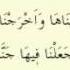 نَاهَا وَأَخْرَجْنَا
جَعَلْنَا فِيهَا جَنَّا